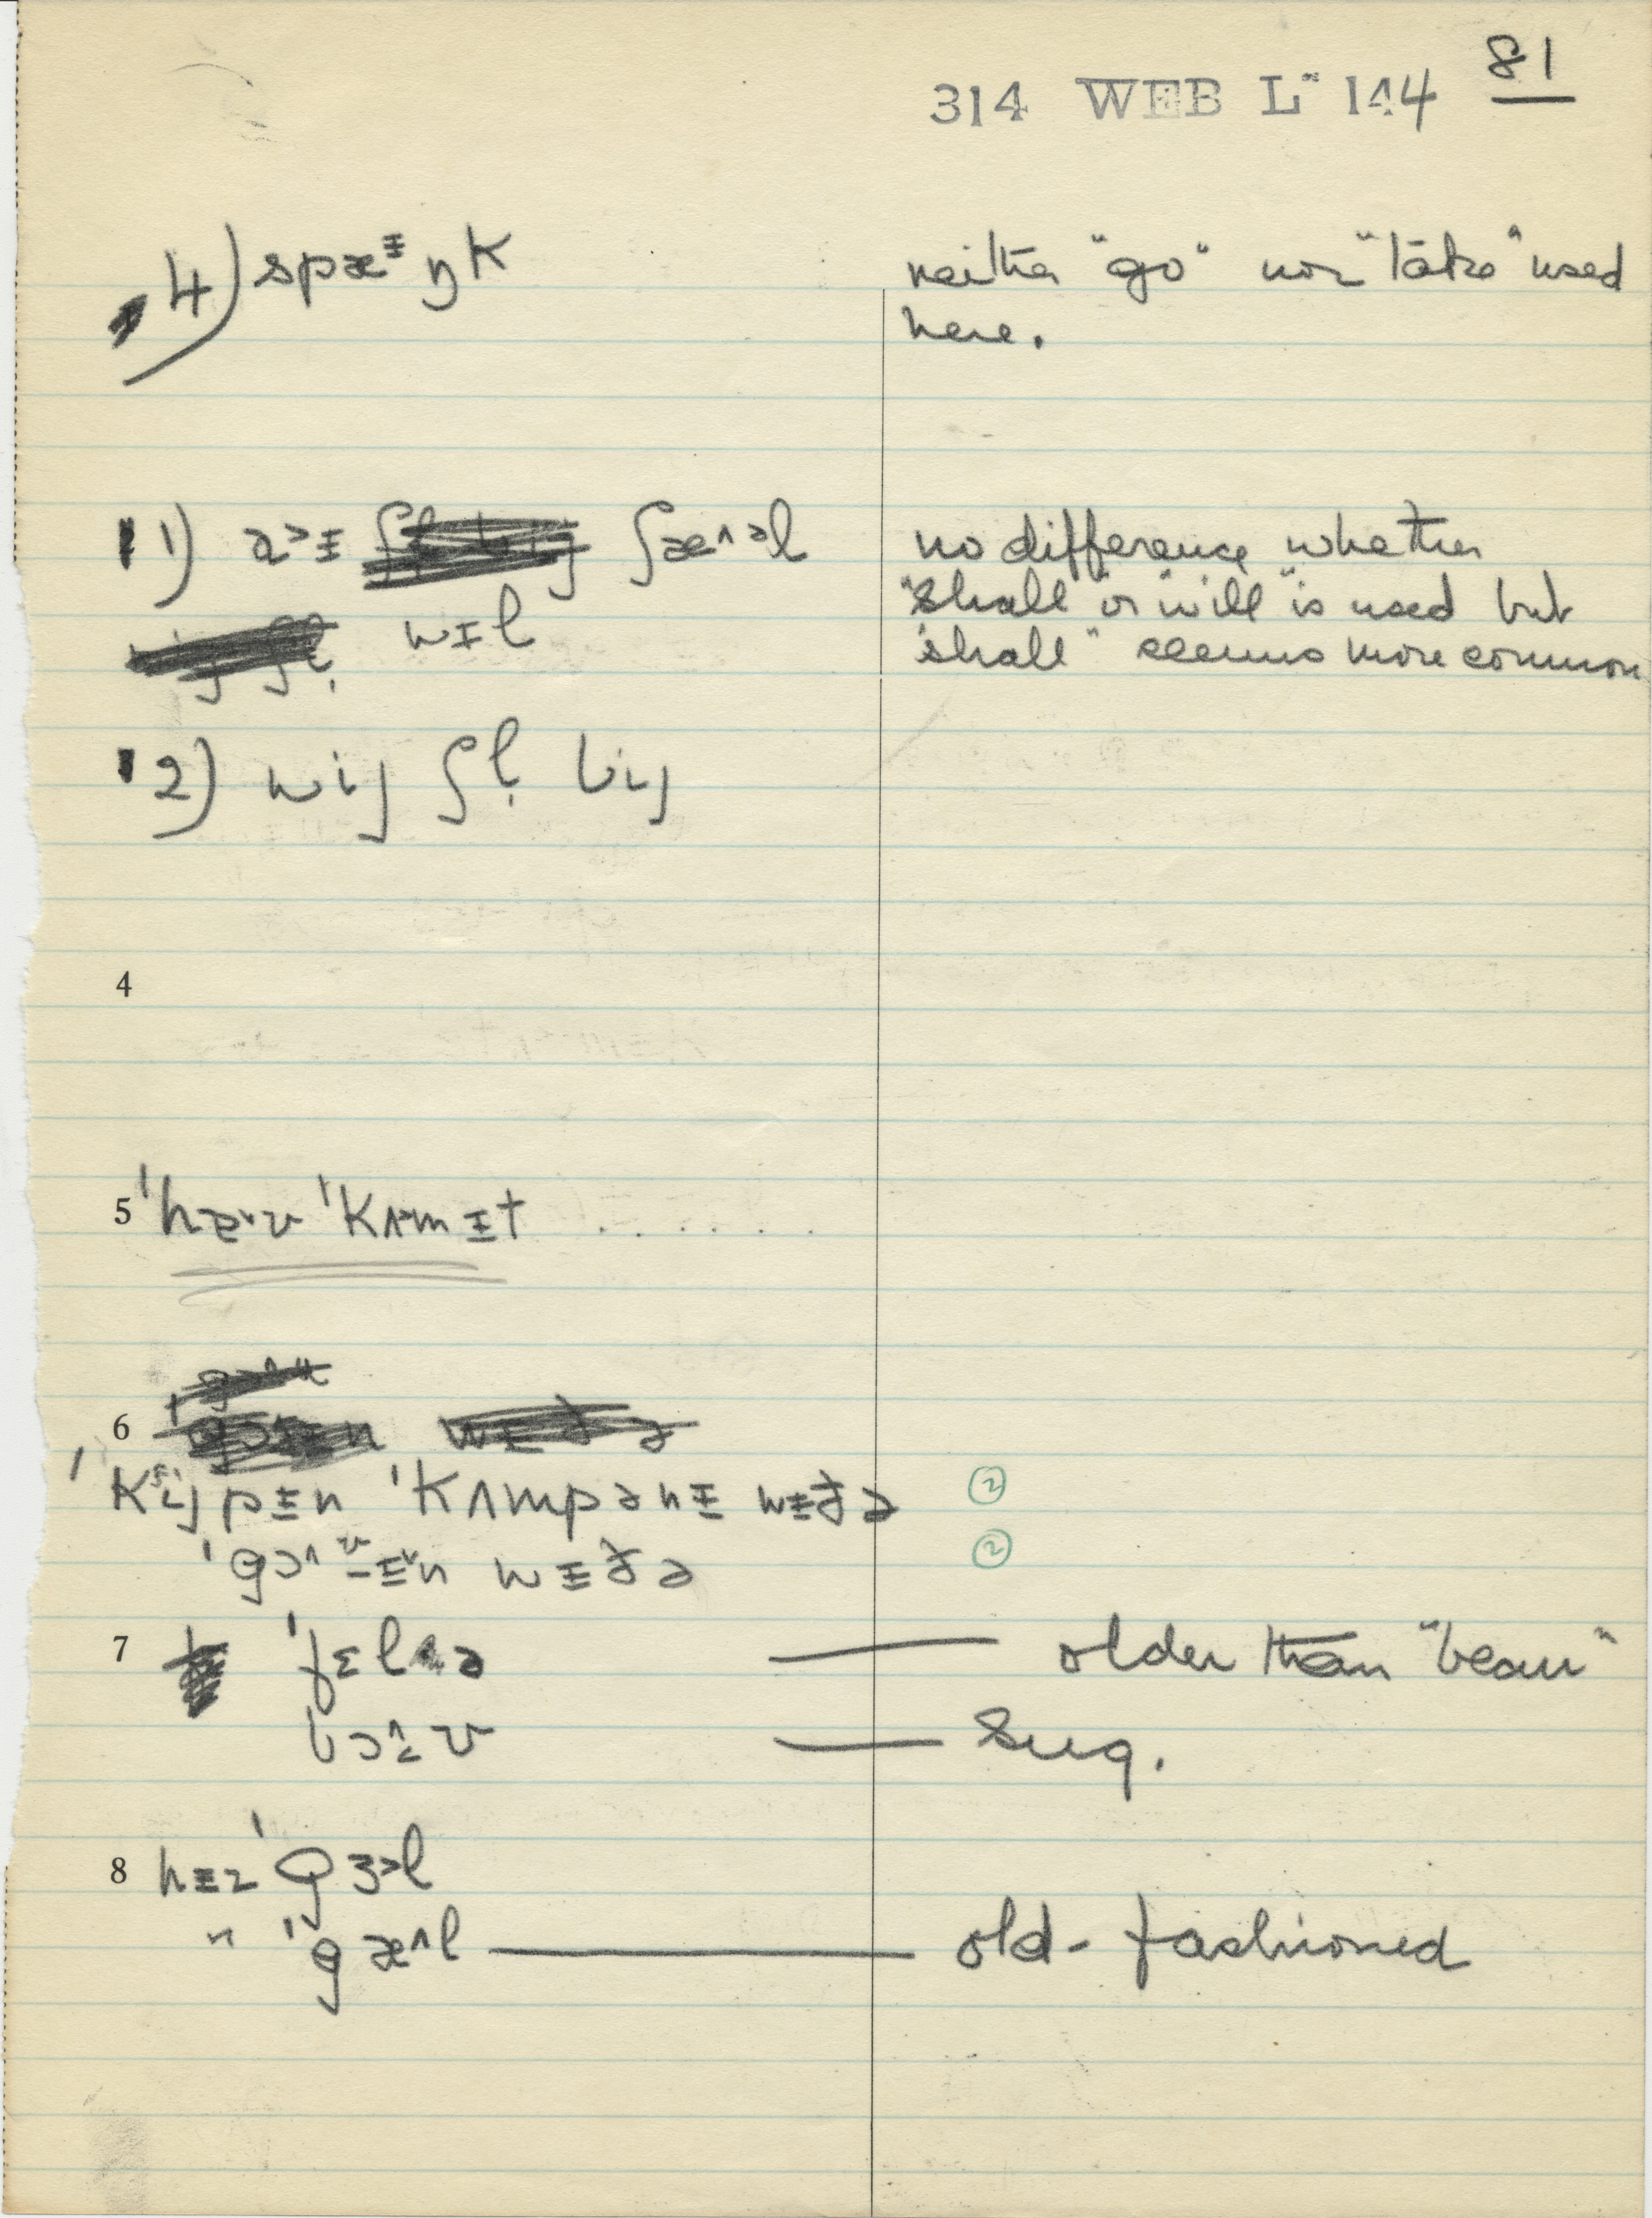 81
314 WEB L~ 144
4) spæᵻŋk
neither "go" nor "take" used
here.
1) a˃ᵻ ʃæ^˃l
no difference whether
"shall" or "will" is used but
"shall" seems more common
wɪl
2) wij ʃl̩ bij
4
5 ˈhæ˅v ˈkʌmᵻt . . . . . .
6
ˈkijpᵻn ˈkʌmpənᵻ wᵻðə ②
wᵻðə ②
7 ˈfɛlə — older than "beau"
— Sug.
8 hᵻz ˈgɜ˃l
" ˈgæ^l — old-fashioned